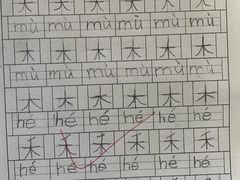 木 木 木 木 木 木
mù mù mù mù mù mù
木 木 木 木 木 木
mù mù mù mù mù mù
hé hé hé hé hé hé
禾 禾 禾 禾 禾 禾
hé hé hé hé hé hé